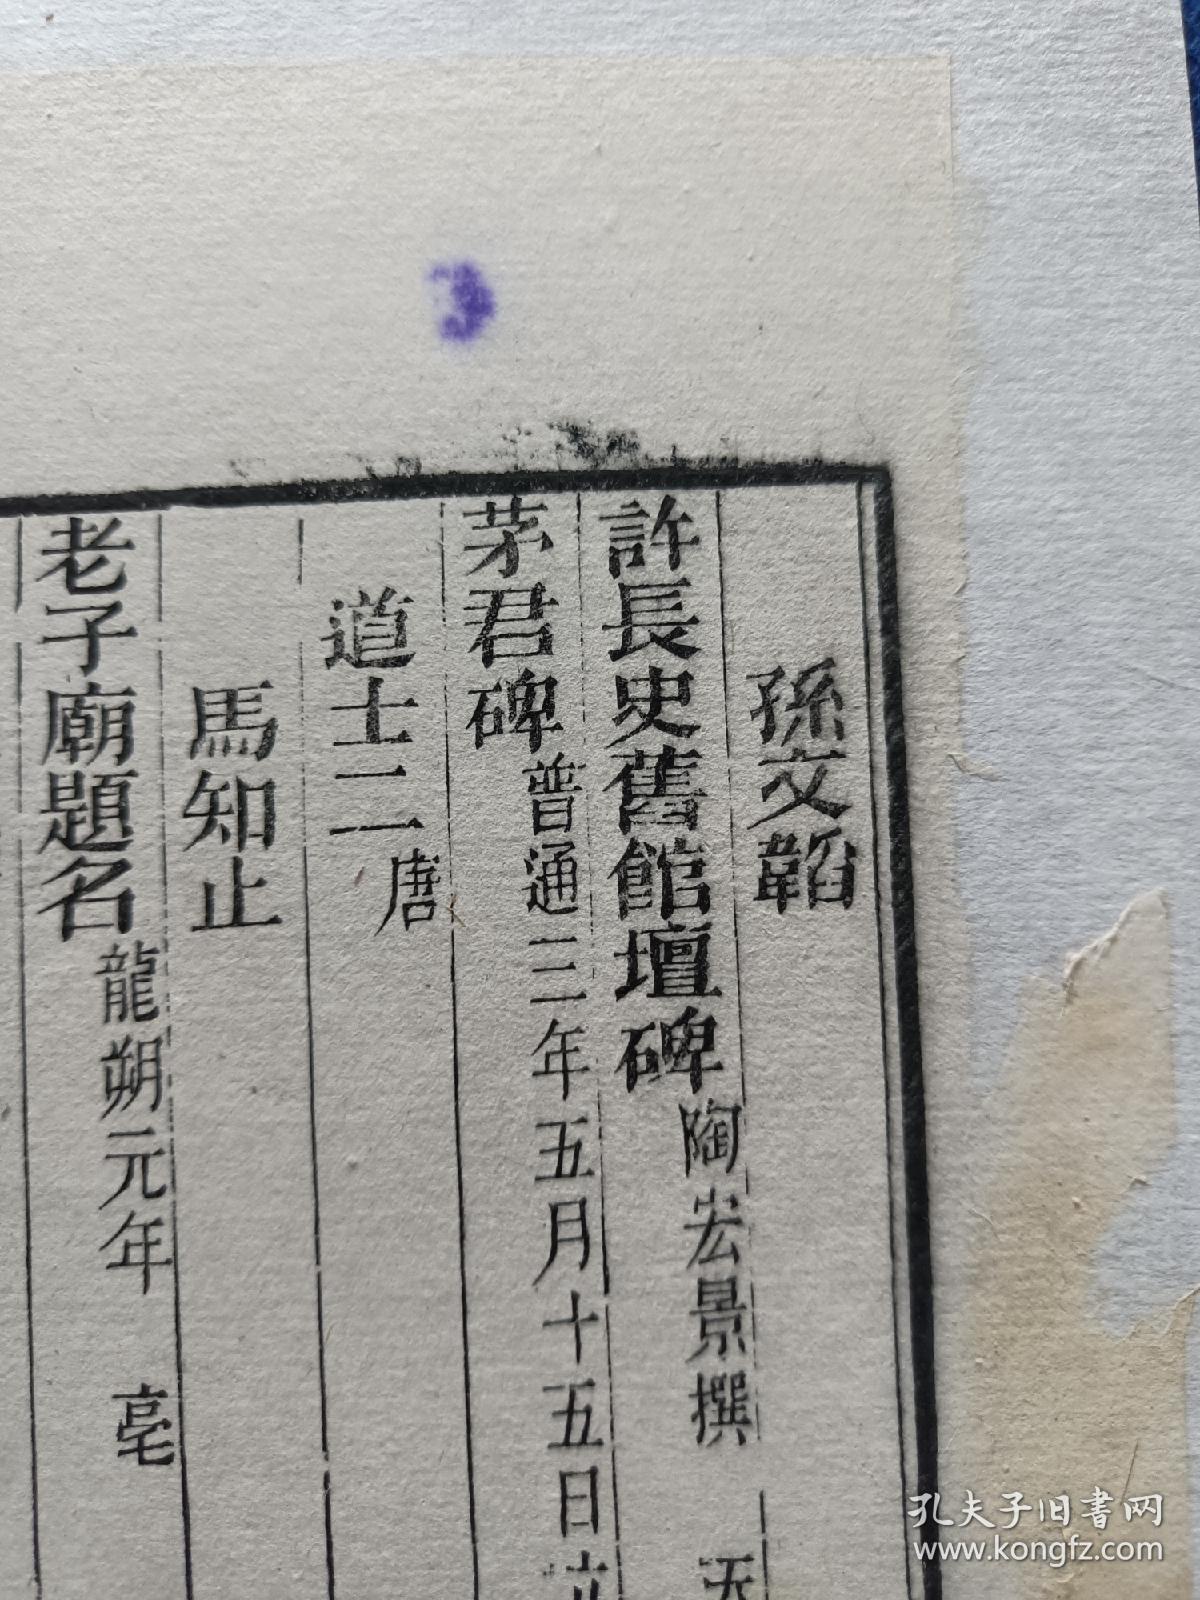 孫文韜
許長史舊館壇碑陶宏景撰
茅君碑普通三年五月十五日
道士二唐
馬知止
老子廟題名龍朔元年 亳
孔夫子旧书网
www.kongfz.com